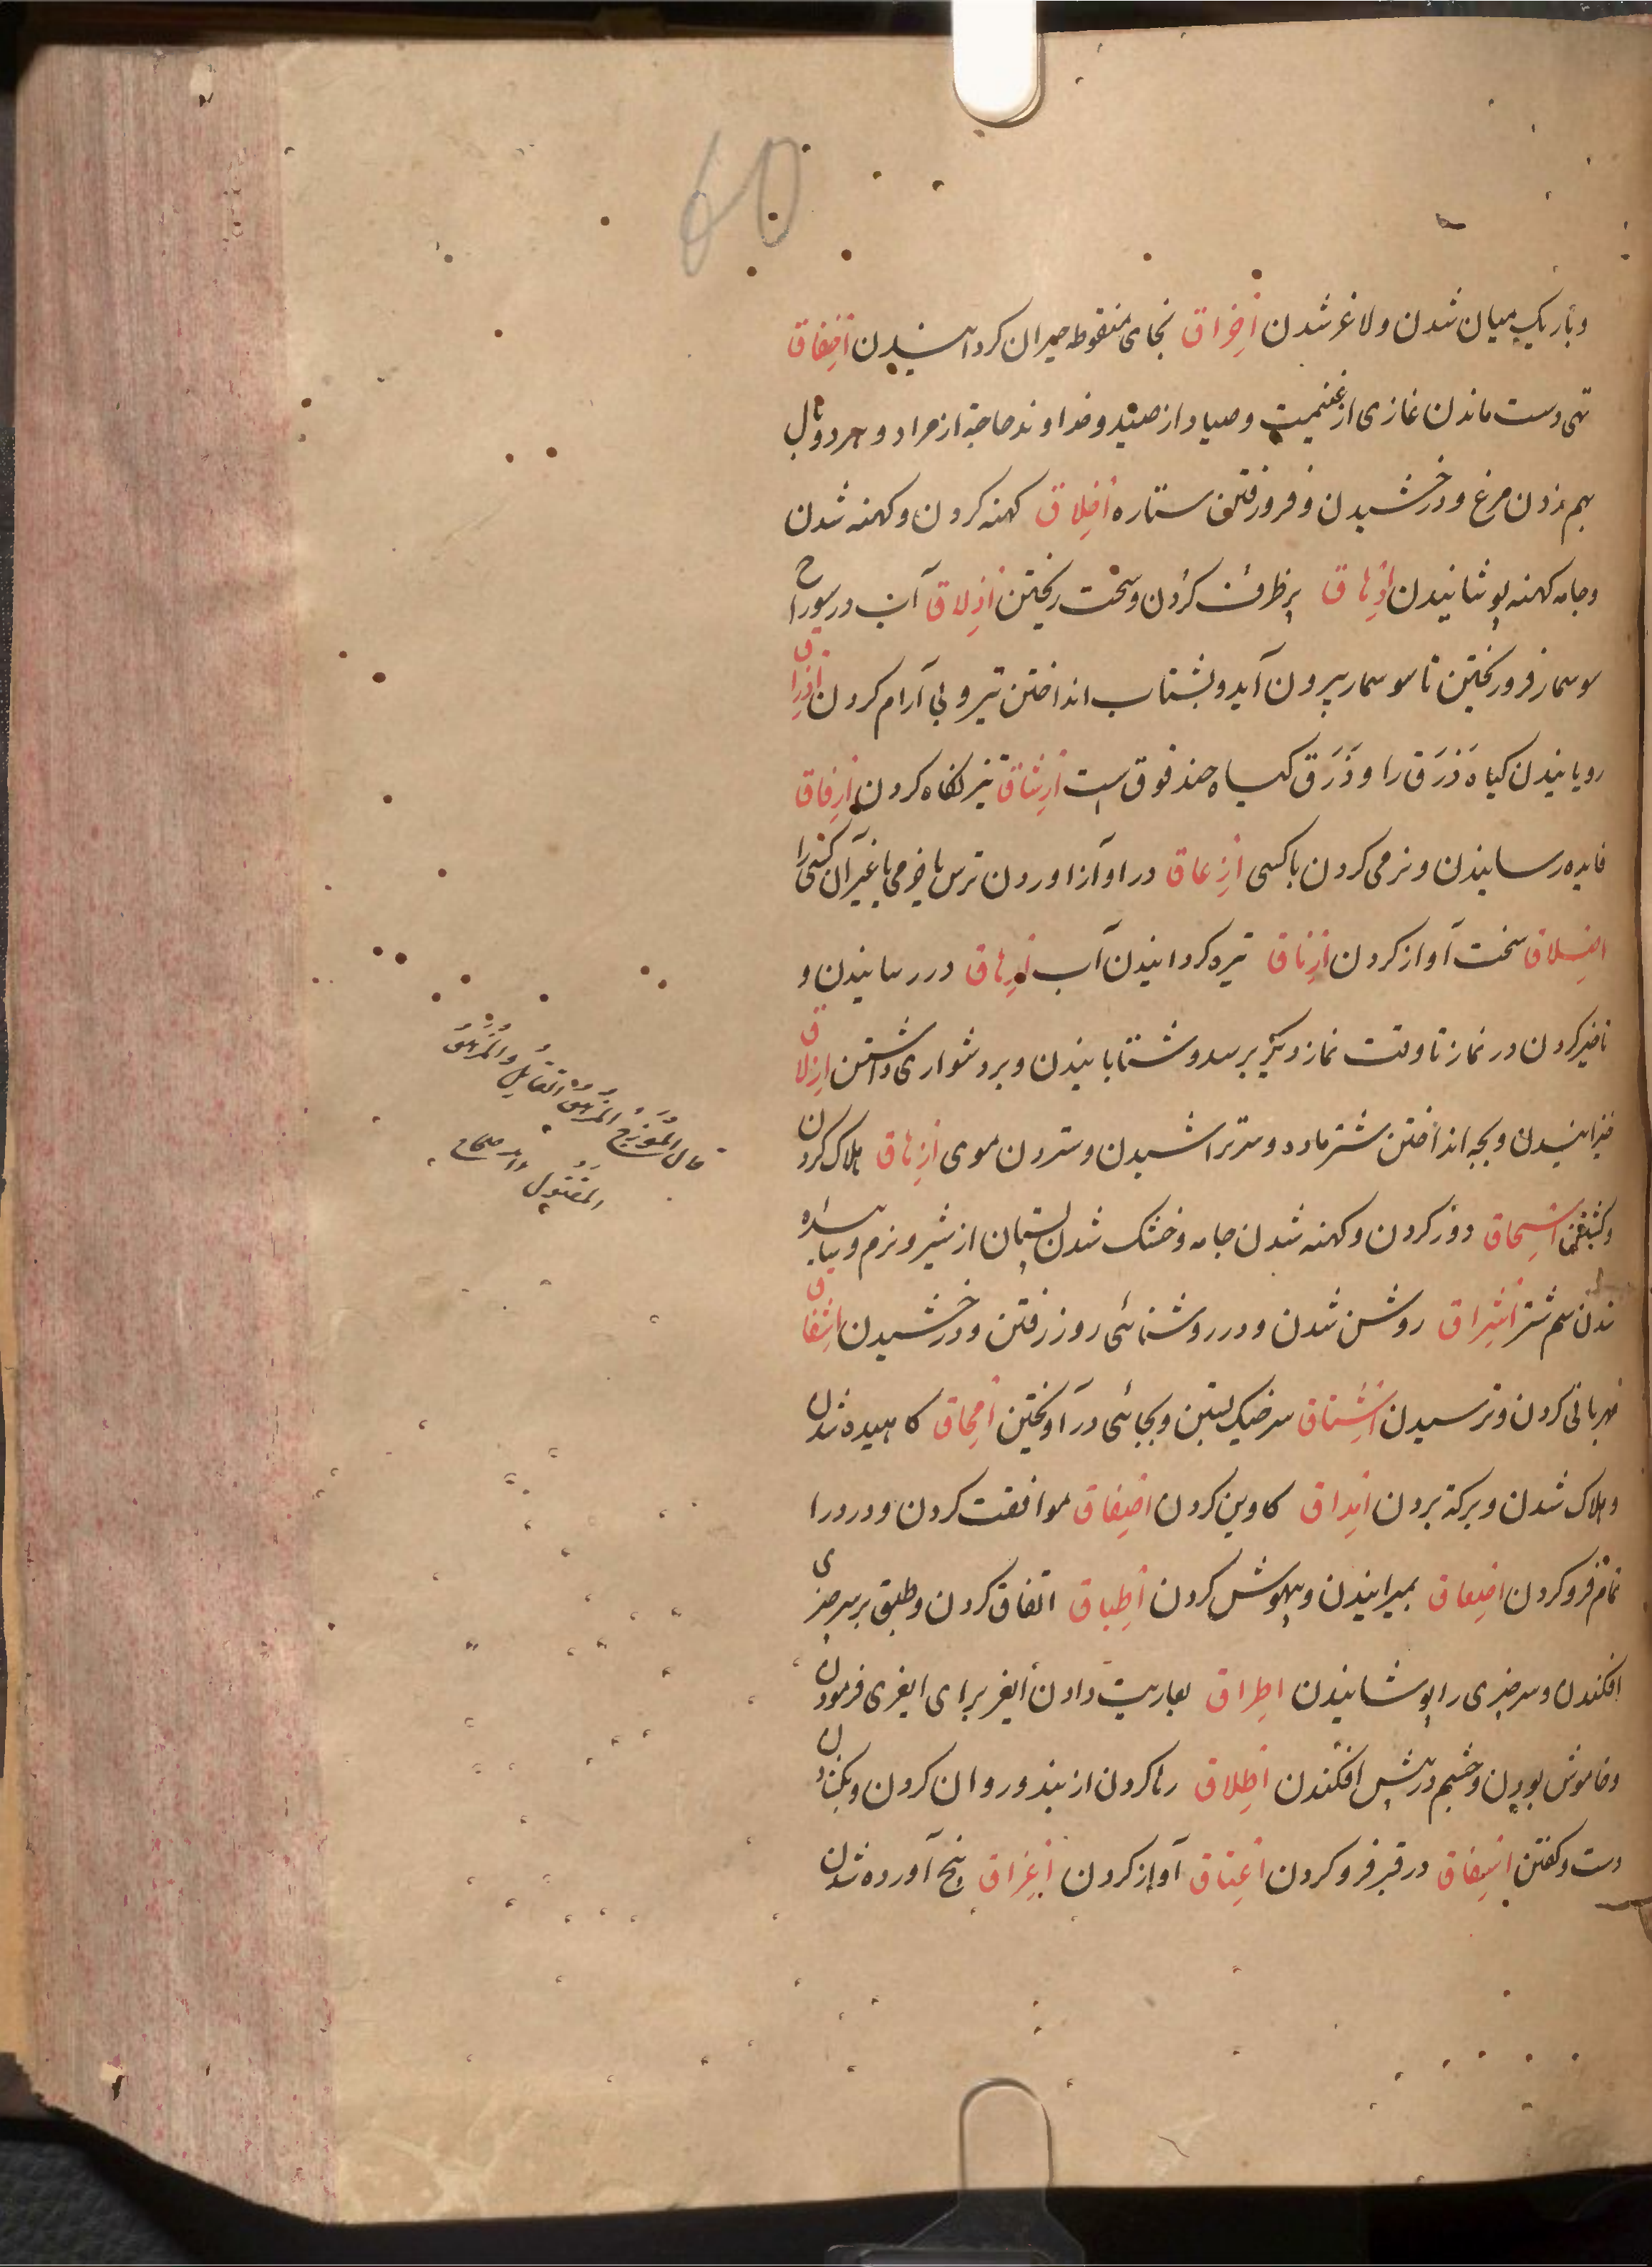 60
و باریک میان شدن و لاغر شدن اخراق بخای منقوطه حیران گردانیدن اخفاق
تهی دست ماندن غازی از غنیمت و صیاد از صید و خداوند حاجة از مراد و هر دو بال
بهم زدن مرغ و درخشیدن و فرو رفتن ستاره اخلاق کهنه کردن و کهنه شدن
و جامه کهنه پوشانیدن ادهاق پر ظرف کردن و سخت ریختن اذلاق آب در سوراخ
سوسمار فرو ریختن تا سوسمار بیرون آید و بشتاب انداختن تیر و بی آرام کردن اذراق
رویانیدن گیاه ذرق را و ذرق گیاه حندقوق است ارشاق تیز نگاه کردن ارفاق
فایده رسانیدن و نرمی کردن با کسی ازعاق در آواز آوردن ترس یا خرمی یا غیر آن کسی را
انسلاق سخت آواز کردن ازناق تیره گردانیدن آب ارهاق در رسانیدن و
تاخیر کردن در نماز تا وقت نماز دیگر برسد و شتابانیدن و بر دشواری داشتن ازلاق
خیزانیدن و بچه انداختن شتر ماده و سر تراشیدن و ستردن موی ازهاق هلاک کردن
اسحاق دور کردن و کهنه شدن جامه و خشک شدن پستان از شیر و نرم و ساییده
شدن سم شتر اشراق روشن شدن و در روشنائی روز رفتن و درخشیدن اشفاق
مهربانی کردن و ترسیدن اشناق سر خیک بستن و بجائی در آویختن امحاق کاهیده شدن
و هلاک شدن و برکة بردن اصداق کاوین کردن اصفاق موافقت کردن و در را
تمام فرو کردن اصعاق بمیرانیدن و بیهوش کردن اطباق اتفاق کردن و طبق بر سر چیزی
افکندن و سر چیزی را پوشانیدن اطراق بعاریت دادن ایغر برای ایغری فرمودن
و خاموش بودن و چشم در پیش افکندن اطلاق رها کردن از بند و روان کردن و بگشادن
دست و گفتن در قبر فرو کردن اعتاق آواز کردن اعراق بیخ آورده شدن
قال المؤرج المزهق القاتل والمزهق
المقتول صحاح